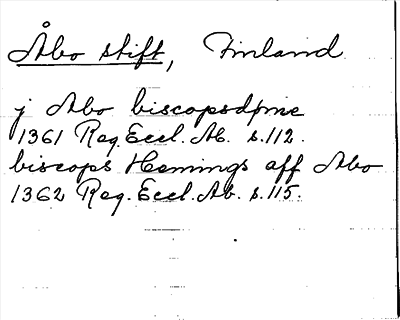 Åbo stift, Finland
j Abo biscopsdøme
1361 Reg. Eccl. Ab. s. 112.
biscops Hemings aff Abo
1362 Reg. Eccl. Ab. s. 115.